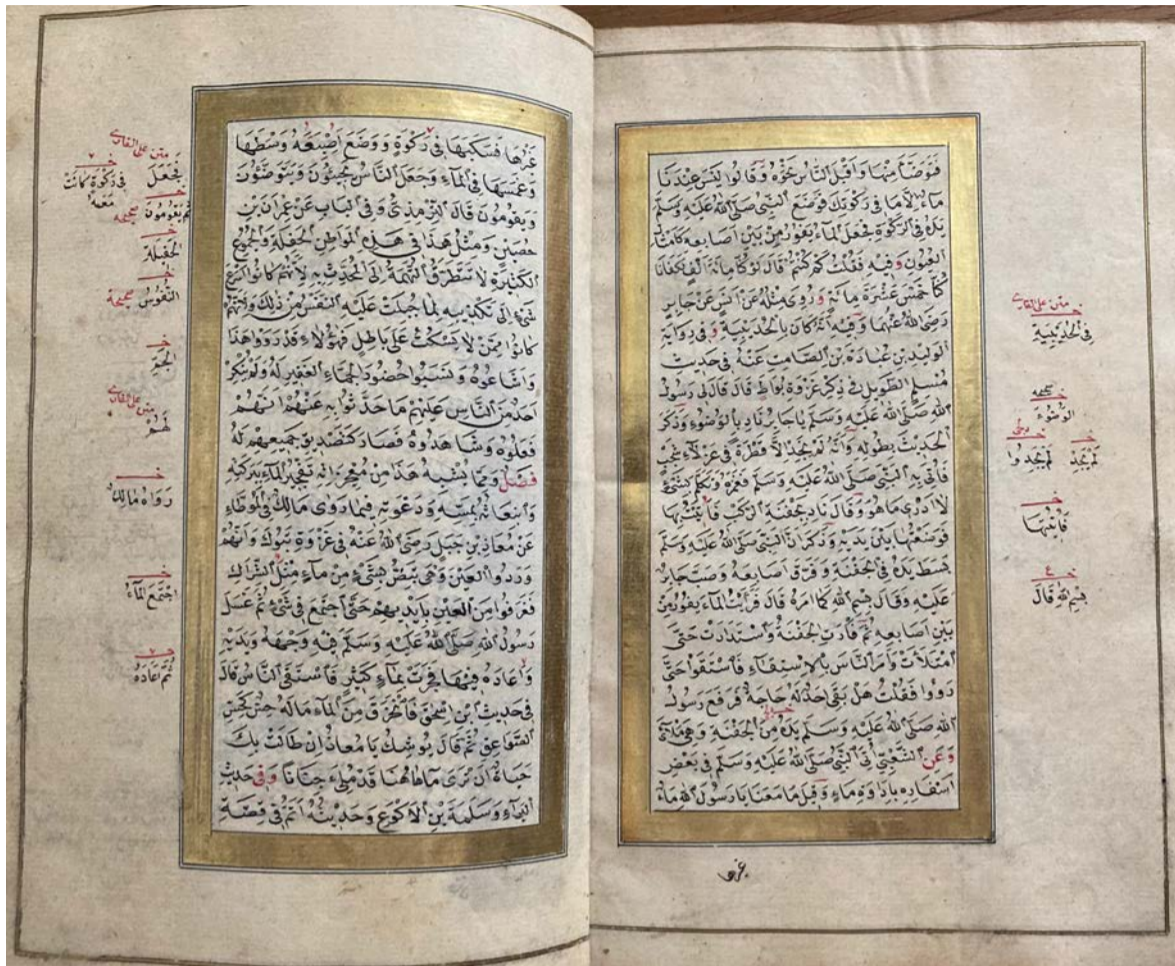 فَتَوَضَّأَ مِنْهَا وَاَقْبَلَ النَّاسُ نَحْوَهُ وَقَالُوا لَيْسَ عِنْدَنَا
مَاءٌ اِلَّا مَا فِى رَكْوَتِكَ فَوَضَعَ النَّبِىُّ صَلَّى اللهُ عَلَيْهِ وَسَلَّمَ
يَدَهُ فِى الرَّكْوَةِ فَجَعَلَ الْمَاءُ يَفُورُ مِنْ بَيْنِ اَصَابِعِهِ كَاَمْثَالِ
الْعُيُونِ وَفِيهِ فَقُلْتُ كَمْ كُنْتُمْ قَالَ لَوْ كُنَّا مِائَةَ اَلْفٍ لَكَفَانَا
كُنَّا خَمْسَ عَشْرَةَ مِائَةً وَرُوِىَ مِثْلُهُ عَنْ اَنَسٍ عَنْ جَابِرٍ
رَضِىَ اللهُ عَنْهُمَا وَفِيهِ اَنَّهُ كَانَ بِالْحُدَيْبِيَةِ وَفِى رِوَايَةِ
الْوَلِيدِ بْنِ عُبَادَةَ بْنِ الصَّامِتِ عَنْهُ فِى حَدِيثِ
مُسْلِمٍ الطَّوِيلِ فِى ذِكْرِ غَزْوَةِ بُوَاطٍ قَالَ قَالَ لِى رَسُولُ
اللهِ صَلَّى اللهُ عَلَيْهِ وَسَلَّمَ يَا جَابِرُ نَادِ بِالْوَضُوءِ وَذَكَرَ
الْحَدِيثَ بِطُولِهِ وَاَنَّهُ لَمْ يَجِدْ اِلَّا قَطْرَةً فِى عَزْلَاءِ شَجْبٍ
فَاُتِىَ بِهِ النَّبِىُّ صَلَّى اللهُ عَلَيْهِ وَسَلَّمَ فَغَمَزَهُ وَتَكَلَّمَ بِشَىْءٍ
لَا اَدْرِى مَا هُوَ وَقَالَ نَادِ بِجَفْنَةِ الرَّكْبِ فَاَتَيْتُ بِهَا
فَوَضَعْتُهَا بَيْنَ يَدَيْهِ وَذَكَرَ اَنَّ النَّبِىَّ صَلَّى اللهُ عَلَيْهِ وَسَلَّمَ
بَسَطَ يَدَهُ فِى الْجَفْنَةِ وَفَرَّقَ اَصَابِعَهُ وَصَبَّ جَابِرٌ
عَلَيْهِ وَقَالَ بِسْمِ اللهِ كَمَا اَمَرَهُ قَالَ فَرَاَيْتُ الْمَاءَ يَفُورُ مِنْ
بَيْنِ اَصَابِعِهِ ثُمَّ فَارَتِ الْجَفْنَةُ وَاسْتَدَارَتْ حَتَّى
امْتَلَاَتْ وَاَمَرَ النَّاسَ بِالْاِسْتِقَاءِ فَاسْتَقَوْا حَتَّى
رَوُوا فَقُلْتُ هَلْ بَقِىَ اَحَدٌ لَهُ حَاجَةٌ فَرَفَعَ رَسُولُ
اللهِ صَلَّى اللهُ عَلَيْهِ وَسَلَّمَ يَدَهُ مِنَ الْجَفْنَةِ وَهِىَ مَلْاٰى
وَعَنِ الشَّعْبِىِّ اُتِىَ النَّبِىُّ صَلَّى اللهُ عَلَيْهِ وَسَلَّمَ فِى بَعْضِ
اَسْفَارِهِ بِاِدَاوَةِ مَاءٍ وَقِيلَ مَا مَعَنَا يَا رَسُولَ اللهِ مَاءٌ
غيرها
متن على القارى
فِى الْحُدَيْبِيَةِ
صحيحه
الْوُضُوءَ
لَمْ نَجِدْ لَمْ يَجِدُوا
فَاُتِيتُ بِهَا
بِسْمِ اللهِ قَالَ
غَيْرُهَا فَسَكَبَهَا فِى رَكْوَةٍ وَوَضَعَ اِصْبَعَهُ وَسْطَهَا
وَغَمَسَهَا فِى الْمَاءِ وَجَعَلَ النَّاسُ يَجِيئُونَ وَيَتَوَضَّئُونَ
وَيَقُومُونَ قَالَ التِّرْمِذِىُّ وَفِى الْبَابِ عَنْ عِمْرَانَ بْنِ
حُصَيْنٍ وَمِثْلُ هٰذَا فِى هٰذِهِ الْمَوَاطِنِ الْحَفِلَةِ وَالْجُمُوعِ
الْكَثِيرَةِ لَا تَتَطَرَّقُ التُّهْمَةُ اِلَى الْمُحَدِّثِ بِهِ لِاَنَّهُمْ كَانُوا اَسْرَعَ
شَىْءٍ اِلَى تَكْذِيبِهِ لِمَا جُبِلَتْ عَلَيْهِ النَّفْسُ مِنْ ذٰلِكَ وَلِاَنَّهُمْ
كَانُوا مِمَّنْ لَا يَسْكُتُ عَلَى بَاطِلٍ فَهٰؤُلَاءِ قَدْ رَوَوْا هٰذَا
وَاَشَاعُوهُ وَنَسَبُوا حُضُورَ الْجَمَّاءِ الْغَفِيرِ لَهُ وَلَمْ يُنْكِرْ
اَحَدٌ مِنَ النَّاسِ عَلَيْهِمْ مَا حَدَّثُوا بِهِ عَنْهُمْ اَنَّهُمْ
فَعَلُوهُ وَشَاهَدُوهُ فَصَارَ كَتَصْدِيقِ جَمِيعِهِمْ لَهُ
فَصْلٌ وَمِمَّا يُشْبِهُ هٰذَا مِنْ مُعْجِزَاتِهِ تَفْجِيرُ الْمَاءِ بِبَرَكَتِهِ
وَانْبِعَاثُهُ بِمَسِّهِ وَدَعْوَتِهِ فِيمَا رَوَى مَالِكٌ فِى الْمُوَطَّاءِ
عَنْ مُعَاذِ بْنِ جَبَلٍ رَضِىَ اللهُ عَنْهُ فِى غَزْوَةِ تَبُوكَ وَاَنَّهُمْ
وَرَدُوا الْعَيْنَ وَهِىَ تَبِضُّ بِشَىْءٍ مِنْ مَاءٍ مِثْلَ الشِّرَاكِ
فَغَرَفُوا مِنَ الْعَيْنِ بِاَيْدِيهِمْ حَتَّى اجْتَمَعَ فِى شَىْءٍ ثُمَّ غَسَلَ
رَسُولُ اللهِ صَلَّى اللهُ عَلَيْهِ وَسَلَّمَ فِيهِ وَجْهَهُ وَيَدَيْهِ
وَاَعَادَهُ فِيهَا فَجَرَتْ بِمَاءٍ كَثِيرٍ فَاسْتَقَى النَّاسُ قَالَ
فِى حَدِيثِ ابْنِ اِسْحٰقَ فَانْخَرَقَ مِنَ الْمَاءِ مَا لَهُ حِسٌّ كَحِسِّ
الصَّوَاعِقِ ثُمَّ قَالَ يُوشِكُ يَا مُعَاذُ اِنْ طَالَتْ بِكَ
حَيَاةٌ اَنْ تَرٰى مَا هٰهُنَا قَدْ مُلِىءَ جِنَانًا وَفِى حَدِيثِ
الْبَرَاءِ وَسَلَمَةَ بْنِ الْاَكْوَعِ وَحَدِيثُهُ اَتَمُّ فِى قِصَّةِ
متن على القارى
فَجَعَلَ فِى رَكْوَةٍ كَانَتْ مَعَهُ
ثُمَّ يَقُومُونَ صحيحه
الْحَفِيلَةِ
النُّفُوسُ صحيحه
الْجَمِّ
متن على القارى
لَهُمْ
رَوَاهُ مَالِكٌ
اجْتَمَعَ الْمَاءُ
ثُمَّ اَعَادَهُ